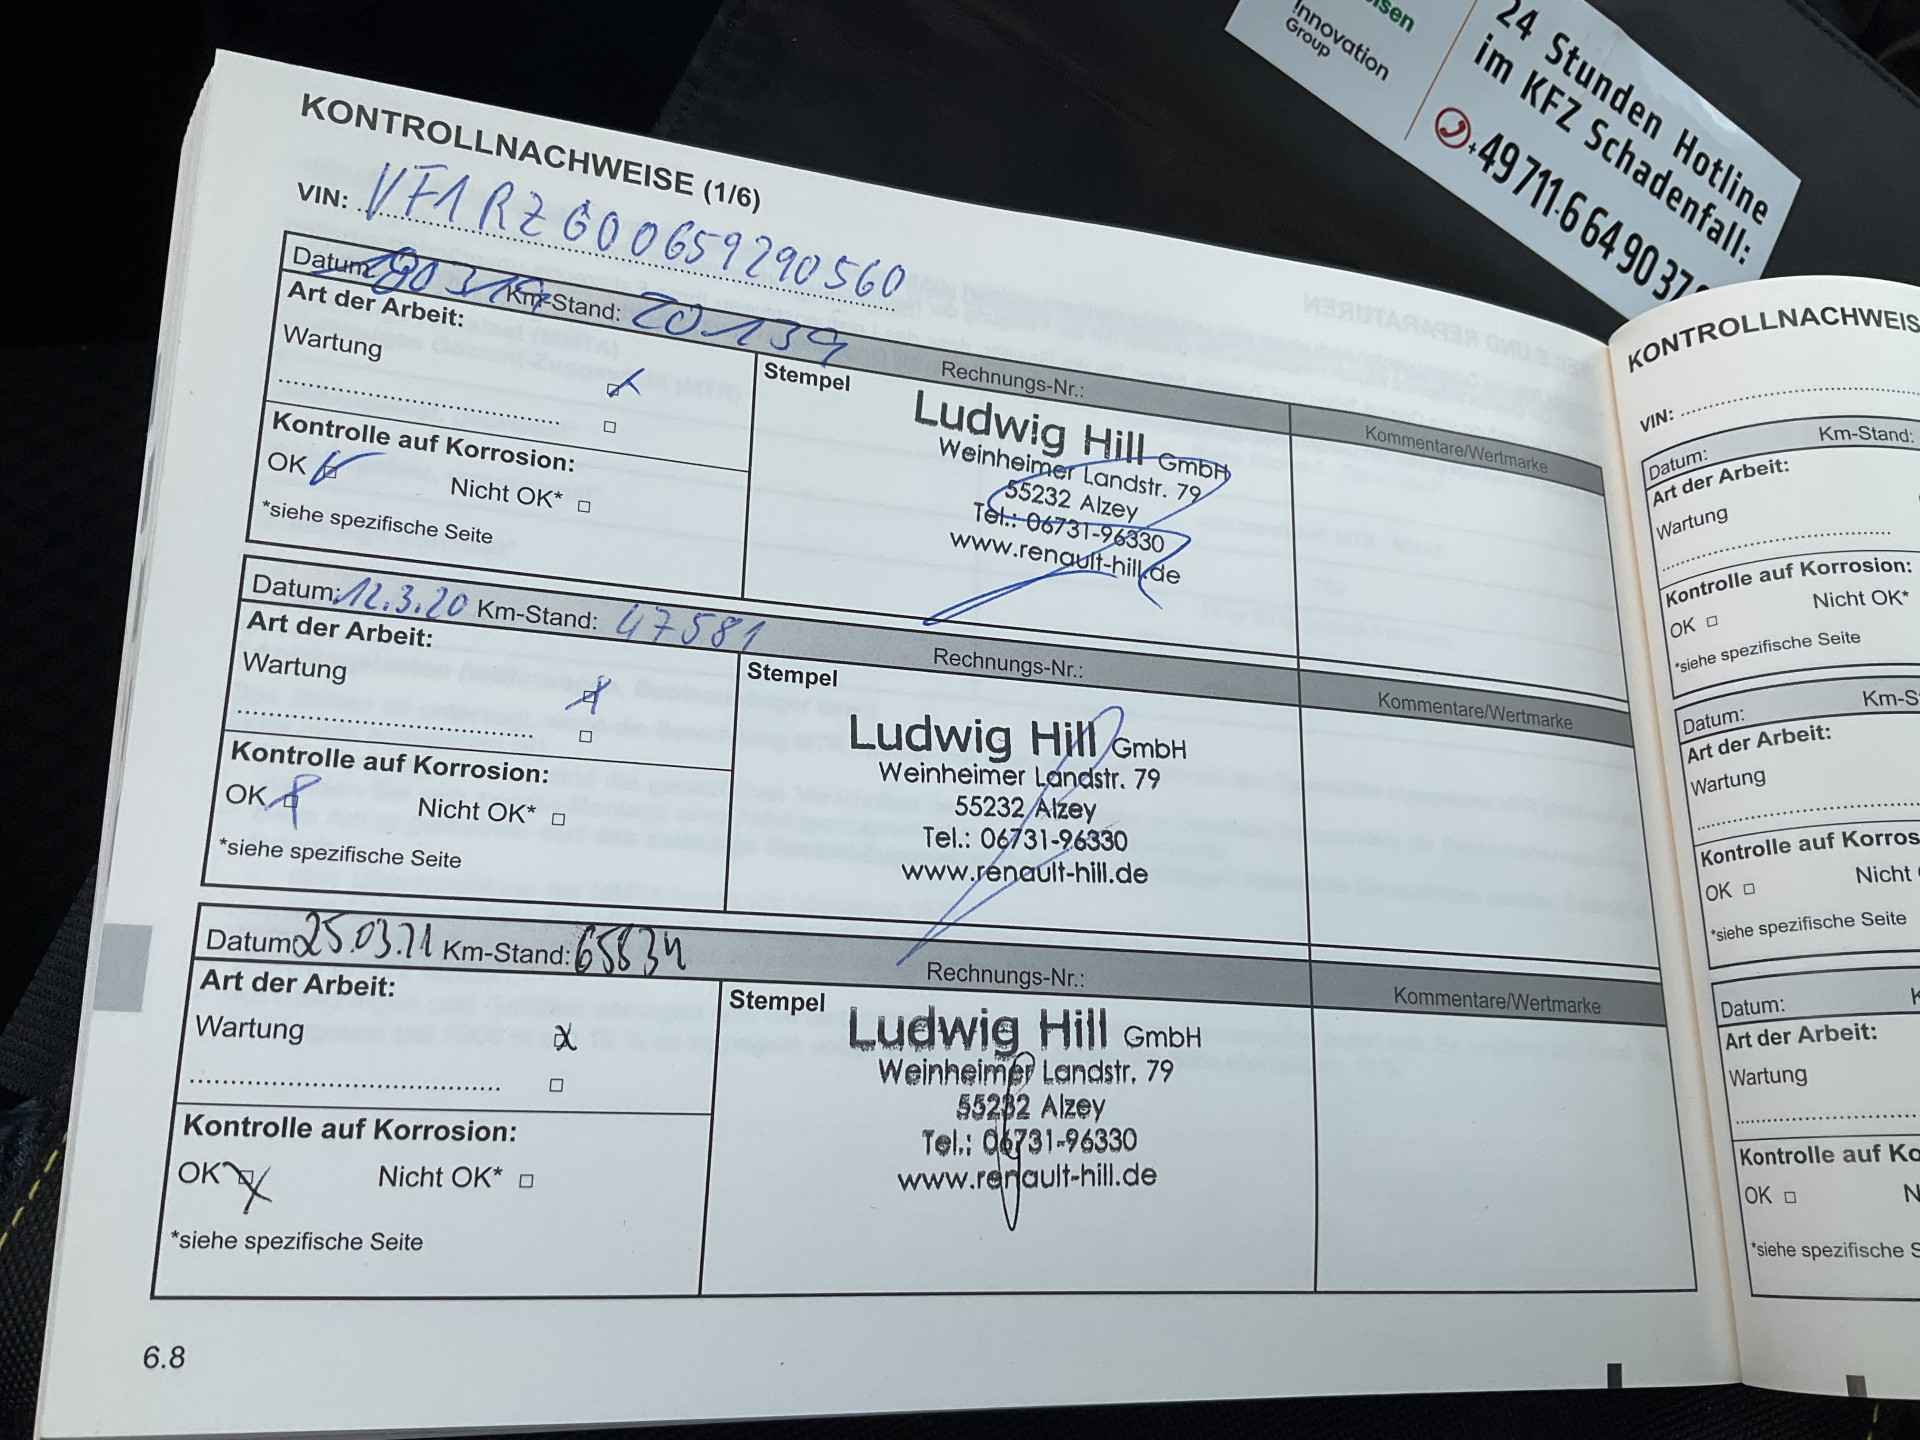 KONTROLLNACHWEISE (1/6)
VIN: VF1RZG00659290560
Datum: Km-Stand: 20139
Rechnungs-Nr.:
Kommentare/Wertmarke
Art der Arbeit:
Wartung
Kontrolle auf Korrosion:
OK Nicht OK*
*siehe spezifische Seite
Stempel
Ludwig Hill GmbH
Weinheimer Landstr. 79
55232 Alzey
Tel.: 06731-96330
www.renault-hill.de
Datum: 12.3.20 Km-Stand: 47581
Rechnungs-Nr.:
Kommentare/Wertmarke
Art der Arbeit:
Wartung
Kontrolle auf Korrosion:
OK Nicht OK*
*siehe spezifische Seite
Stempel
Ludwig Hill GmbH
Weinheimer Landstr. 79
55232 Alzey
Tel.: 06731-96330
www.renault-hill.de
Datum: 25.03.21 Km-Stand: 65834
Rechnungs-Nr.:
Kommentare/Wertmarke
Art der Arbeit:
Wartung
Kontrolle auf Korrosion:
OK Nicht OK*
*siehe spezifische Seite
Stempel
Ludwig Hill GmbH
Weinheimer Landstr. 79
55232 Alzey
Tel.: 06731-96330
www.renault-hill.de
6.8
Innovation
Group
24 Stunden Hotline
im KFZ Schadenfall:
+49 711-6 64 90 37
KONTROLLNACHWEIS
VIN:
Datum: Km-Stand:
Art der Arbeit:
Wartung
Kontrolle auf Korrosion:
OK Nicht OK*
*siehe spezifische Seite
Datum: Km-S
Art der Arbeit:
Wartung
Kontrolle auf Korros
OK Nicht
*siehe spezifische Seite
Datum: K
Art der Arbeit:
Wartung
Kontrolle auf Ko
OK N
*siehe spezifische S